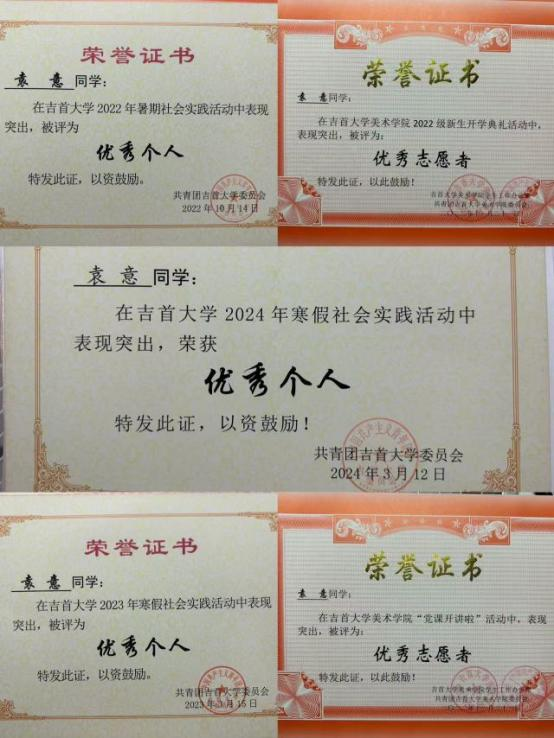 荣誉证书
袁 意 同学：
在吉首大学 2022 年暑期社会实践活动中表现
突出，被评为
优秀个人
特发此证，以资鼓励。
共青团吉首大学委员会
2022 年 10 月 14 日
荣誉证书
袁 意 同学：
在吉首大学美术学院 2022 级新生开学典礼活动中，
表现突出，被评为：
优秀志愿者
特发此证，以此鼓励！
吉首大学美术学院学生工作办公室
共青团吉首大学美术学院委员会
袁 意 同学：
在吉首大学 2024 年寒假社会实践活动中
表现突出，荣获
优秀个人
特发此证，以资鼓励！
共青团吉首大学委员会
2024 年 3 月 12 日
荣誉证书
袁 意 同学：
在吉首大学 2023 年寒假社会实践活动中表现
突出，被评为
优秀个人
特发此证，以资鼓励。
共青团吉首大学委员会
2023 年 3 月 15 日
荣誉证书
袁 意 同学：
在吉首大学美术学院“党课开讲啦”活动中，表现
突出，被评为：
优秀志愿者
特发此证，以此鼓励！
吉首大学美术学院学生工作办公室
共青团吉首大学美术学院委员会